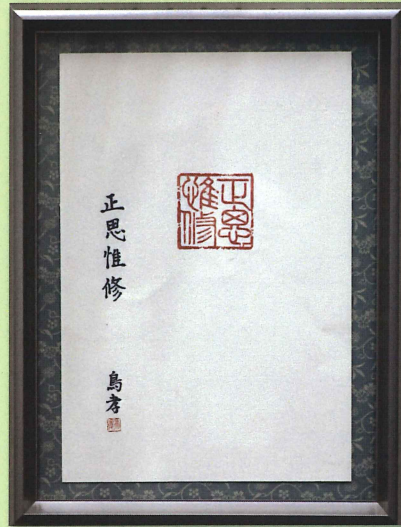 正思
惟修
正思惟修
鳥孝